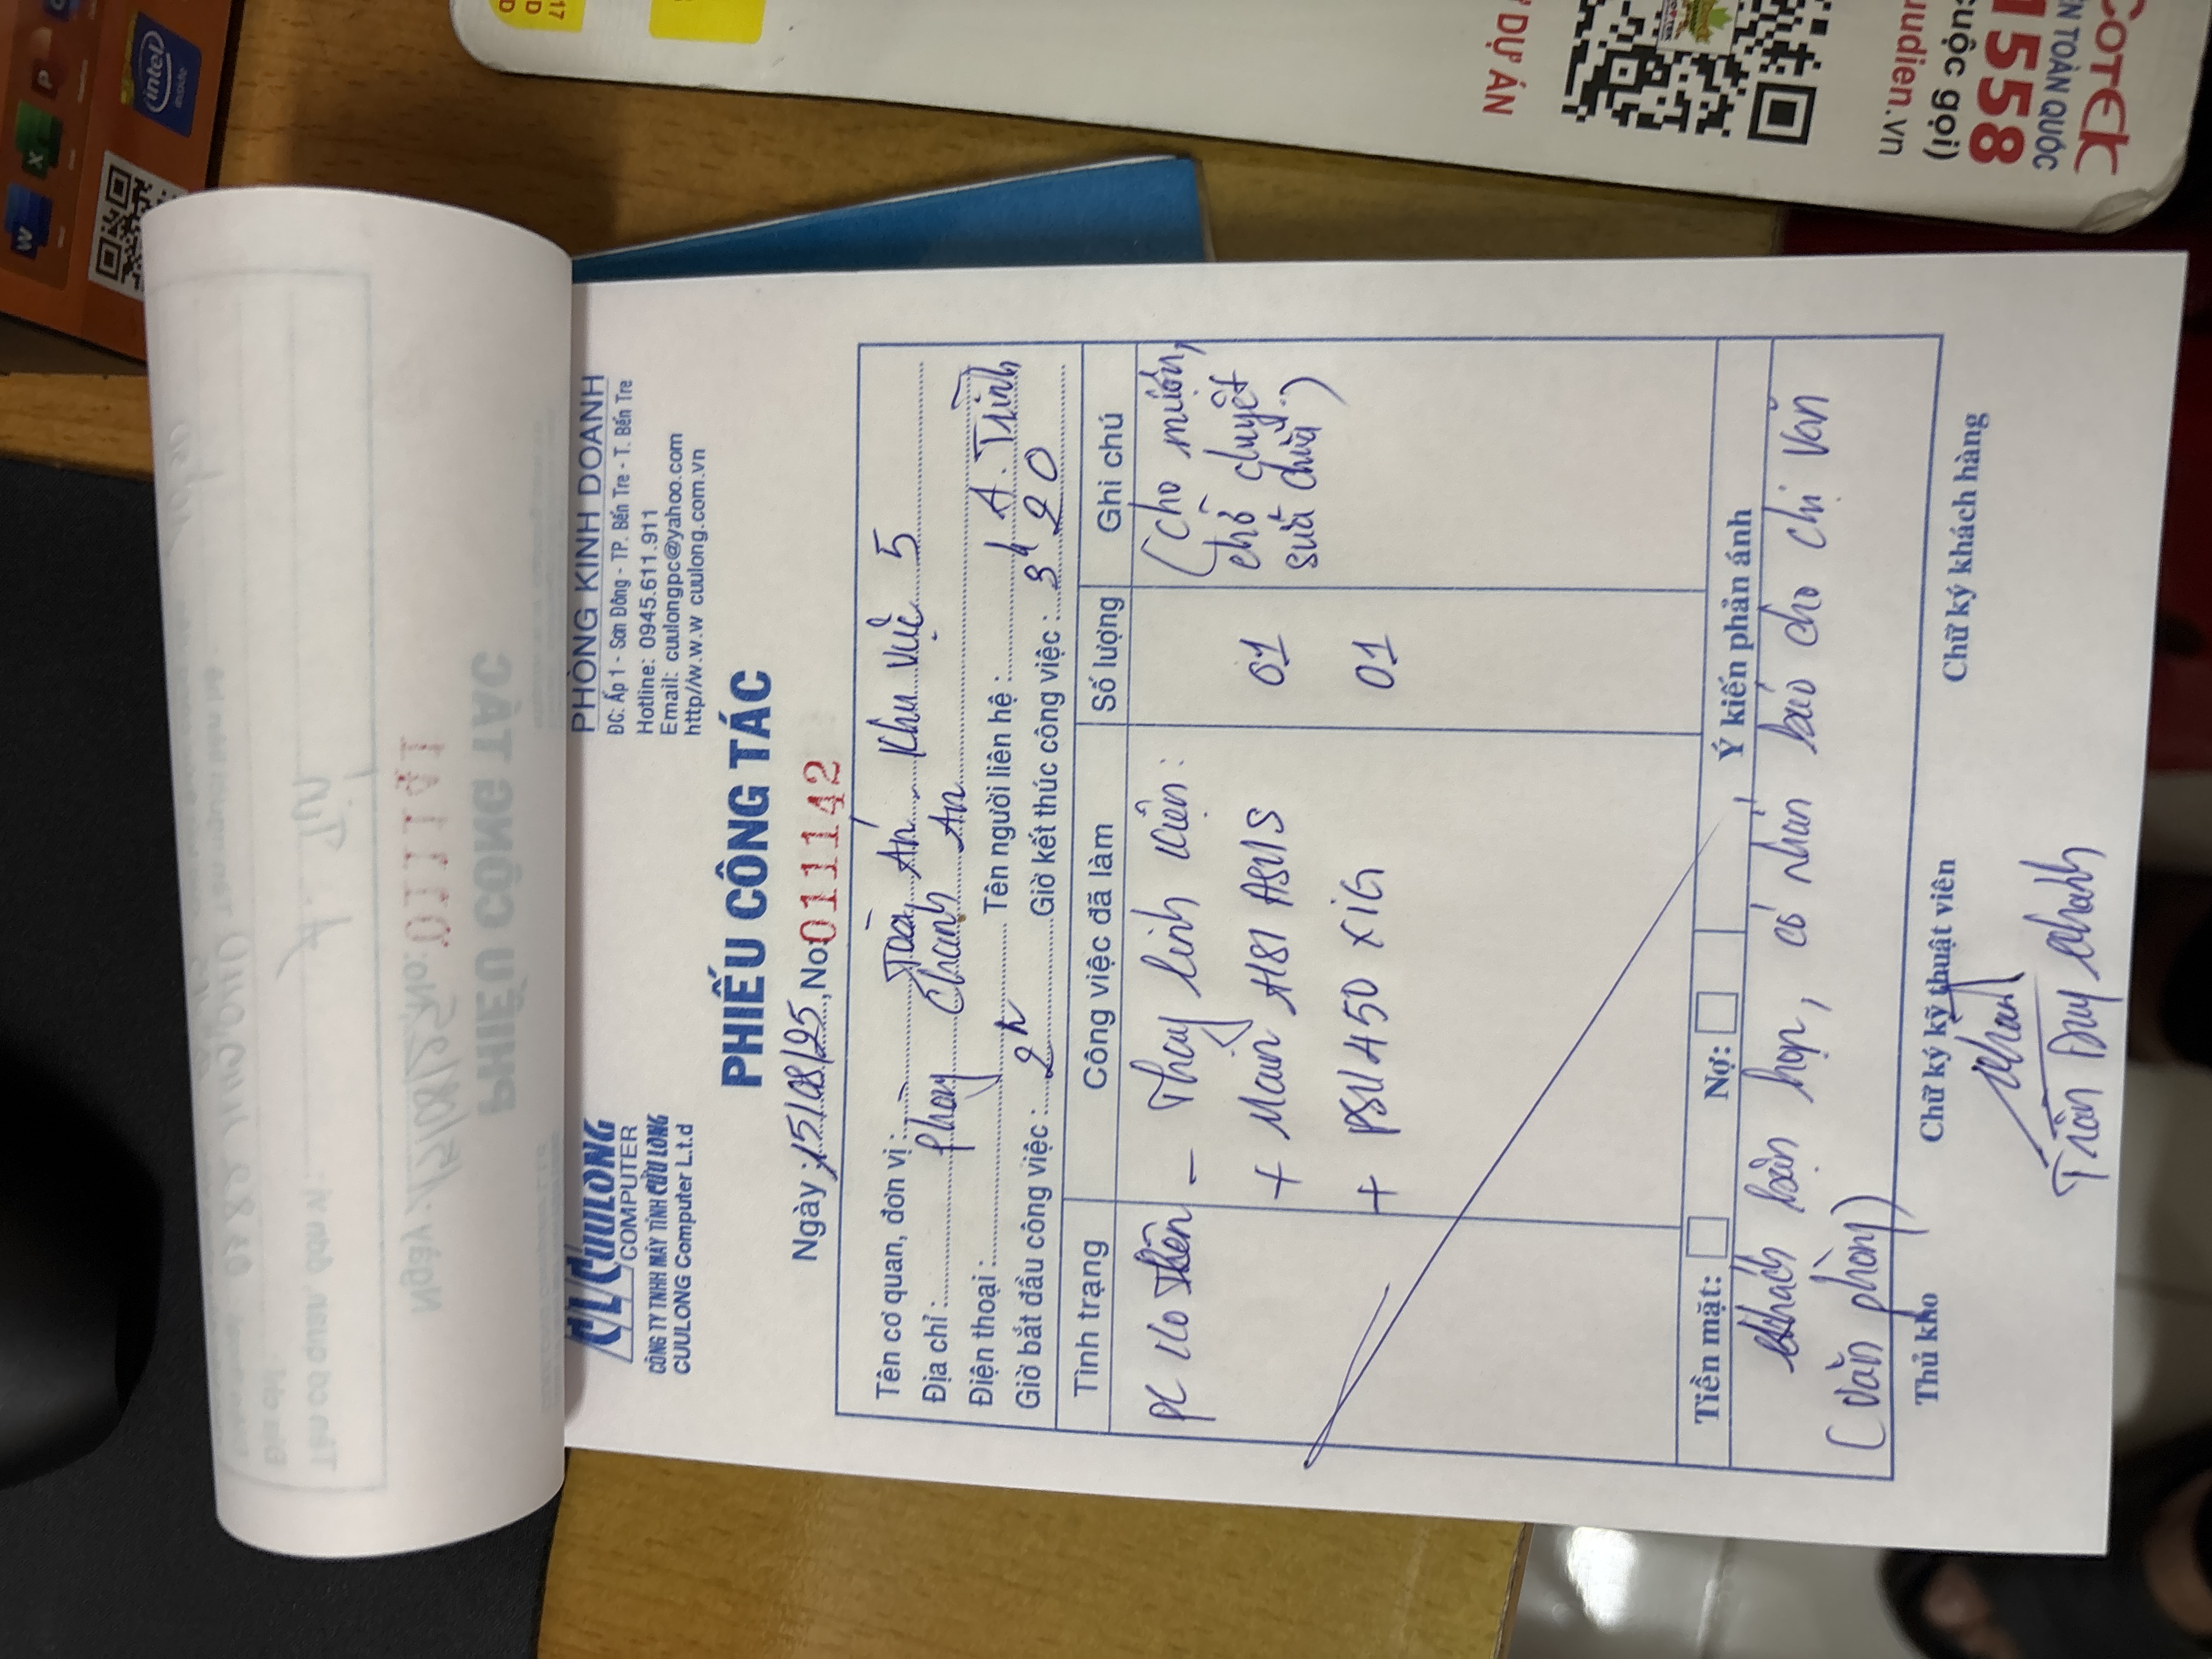 CL CUULONG
COMPUTER
CÔNG TY TNHH MÁY TÍNH CỬU LONG
CUULONG Computer L.t.d
PHÒNG KINH DOANH
ĐC: Ấp 1 - Sơn Đông - TP. Bến Tre - T. Bến Tre
Hotline: 0945.611.911
Email: cuulongpc@yahoo.com
http//w.w.w cuulong.com.vn
PHIẾU CÔNG TÁC
Ngày: 15/08/25, No 011142
Tên cơ quan, đơn vị: Tòa Án Khu Vực 5
Địa chỉ: Phong Chanh An
Điện thoại: Tên người liên hệ: A. Trình
Giờ bắt đầu công việc: 2h Giờ kết thúc công việc: 3h20
Tình trạng Công việc đã làm Số lượng Ghi chú
PC ko lên - Thay linh kiện: (cho mượn,
+ Main H81 ASUS 01 chờ duyệt
sửa chữa)
+ PSU 450 XIG 01
Tiền mặt: Nợ: Ý kiến phản ánh
khách bận họp, có nhắn báo cho chị Vân
(văn phòng)
Thủ kho Chữ ký kỹ thuật viên Chữ ký khách hàng
Trần Duy Khanh
PHIẾU CÔNG TÁC
No: 011141
COTEK
N TOÀN QUỐC
1558
cuộc gọi)
uudien.vn
DỰ ÁN
intel
inside
W
X
P
17
D